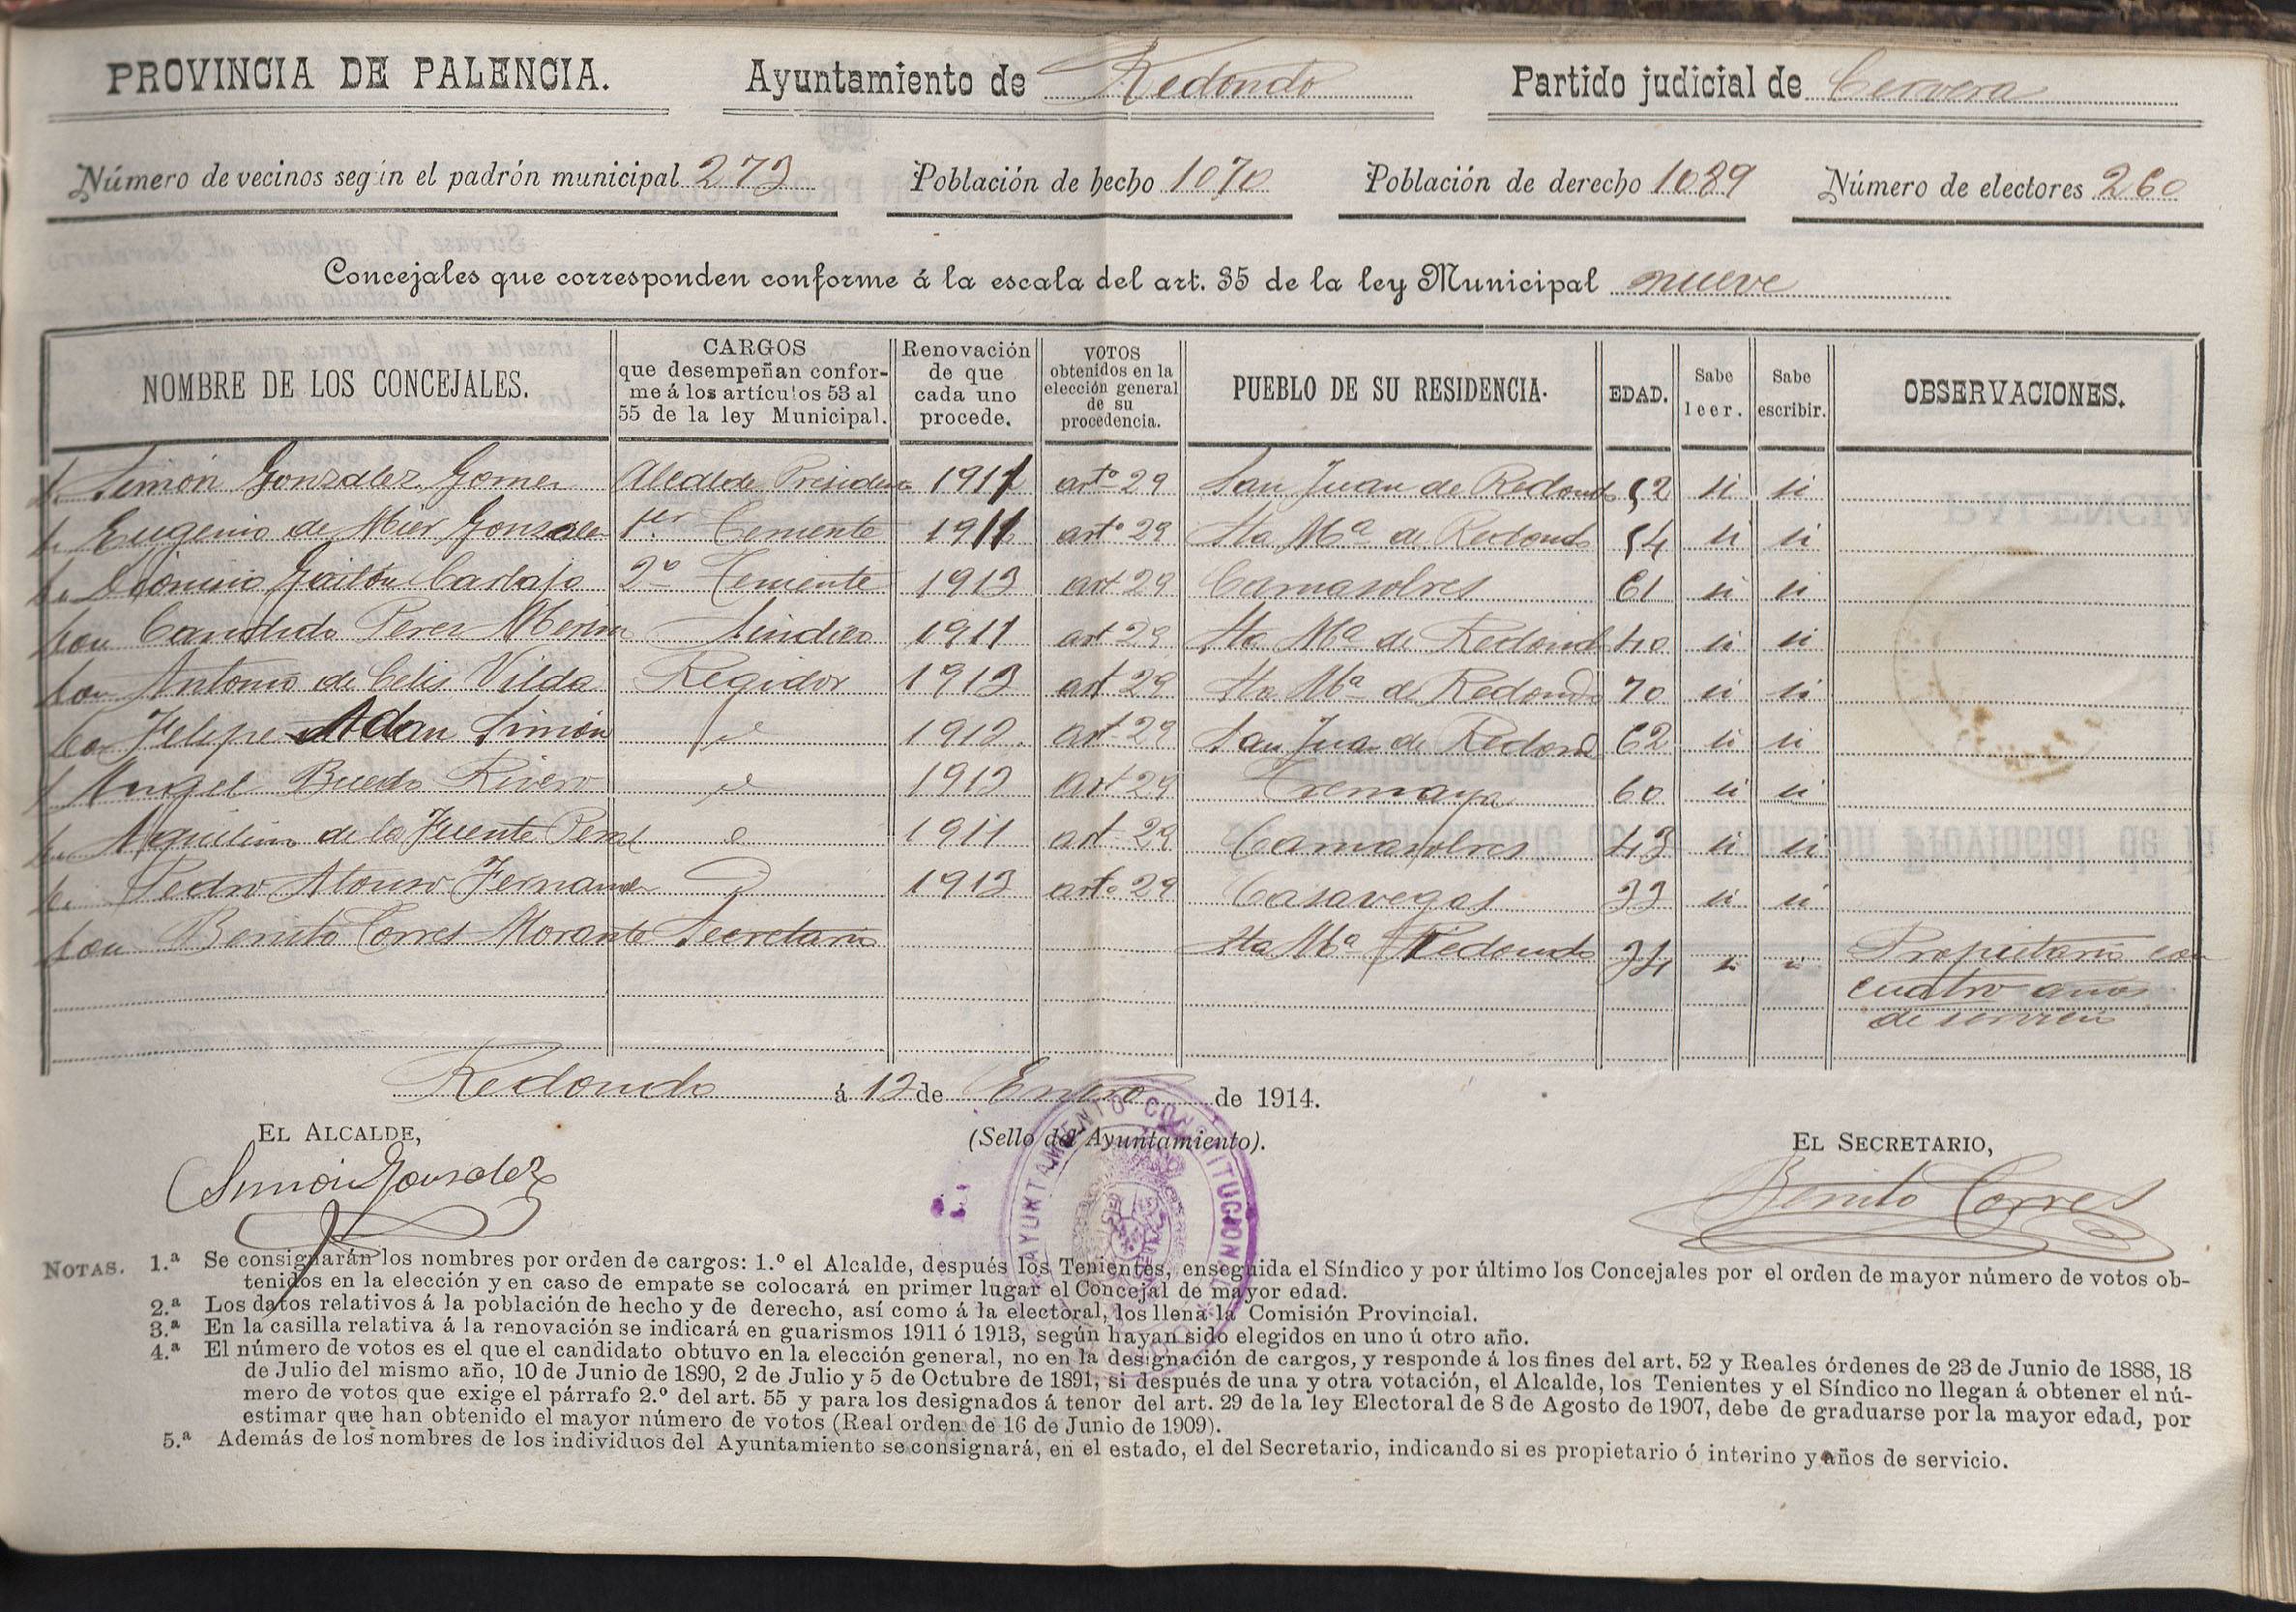 PROVINCIA DE PALENCIA. Ayuntamiento de Redondo Partido judicial de Cervera
Número de vecinos según el padrón municipal 273 Población de hecho 1070 Población de derecho 1089 Número de electores 260
Concejales que corresponden conforme á la escala del art. 35 de la ley Municipal nueve
NOMBRE DE LOS CONCEJALES.
CARGOS
que desempeñan confor-
me á los artículos 53 al
55 de la ley Municipal.
Renovación
de que
cada uno
procede.
VOTOS
obtenidos en la
elección general
de su
procedencia.
PUEBLO DE SU RESIDENCIA.
EDAD.
Sabe
leer.
Sabe
escribir.
OBSERVACIONES.
Simón Gonzalez Gomez Alcalde Presidente 1911 artº 29 San Juan de Redondo 52 si si
Eugenio de Mier Gonzalez 1er Teniente 1911 artº 29 Sta Mª de Redondo 54 si si
Dionisio 2º Teniente 1913 art 29 Camasobres 61 si si
Don Candido Perez Merino Sindico 1911 art 29 Sta Mª de Redondo 40 si si
Don Antonio de Celis Vilda Regidor 1913 art 29 Sta Mª de Redondo 70 si si
Don Felipe Adan Simón 1913 art 29 San Juan de Redond 62 si si
Angel Buedo Rivero 1913 art 29 Tremaya 60 si si
Aquilino de la Fuente Peral 1911 art 29 Camasobres 43 si si
Pedro Alonso Fernandez 1913 artº 29 Casavegas 33 si si
Don Benito Torres Morante Secretario Sta Mª Redondo 34 si si Propietario con
cuatro años
de servicio
Redondo á 12 de Enero de 1914.
EL ALCALDE, (Sello del Ayuntamiento). EL SECRETARIO,
AYUNTAMIENTO CONSTITUCIONAL
Simon Gonzalez Benito Torres
NOTAS. 1.ª Se consignarán los nombres por orden de cargos: 1.º el Alcalde, después los Tenientes, enseguida el Síndico y por último los Concejales por el orden de mayor número de votos ob-
tenidos en la elección y en caso de empate se colocará en primer lugar el Concejal de mayor edad.
2.ª Los datos relativos á la población de hecho y de derecho, así como á la electoral, los llena la Comisión Provincial.
3.ª En la casilla relativa á la renovación se indicará en guarismos 1911 ó 1913, según hayan sido elegidos en uno ú otro año.
4.ª El número de votos es el que el candidato obtuvo en la elección general, no en la designación de cargos, y responde á los fines del art. 52 y Reales órdenes de 23 de Junio de 1888, 18
de Julio del mismo año, 10 de Junio de 1890, 2 de Julio y 5 de Octubre de 1891, si después de una y otra votación, el Alcalde, los Tenientes y el Síndico no llegan á obtener el nú-
mero de votos que exige el párrafo 2.º del art. 55 y para los designados á tenor del art. 29 de la ley Electoral de 8 de Agosto de 1907, debe de graduarse por la mayor edad, por
estimar que han obtenido el mayor número de votos (Real orden de 16 de Junio de 1909).
5.ª Además de los nombres de los individuos del Ayuntamiento se consignará, en el estado, el del Secretario, indicando si es propietario ó interino y años de servicio.